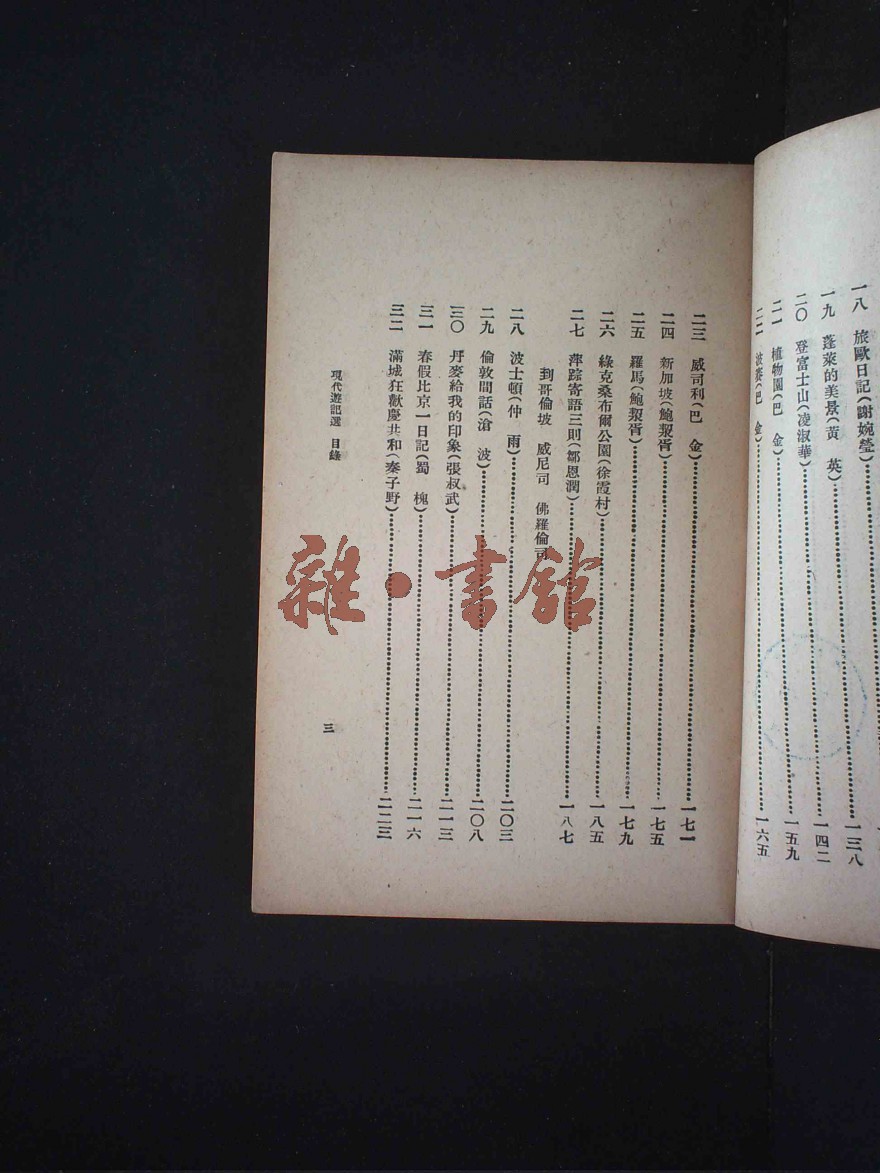 一八　旅歐日記（謝婉瑩）……一三八
一九　蓬萊的美景（黃　英）……一四二
二〇　登富士山（凌淑華）……一五九
二一　植物園（巴　金）……一六五
二二　波蒌（巴　金）……
二三　威司利（巴　金）……一七一
二四　新加坡（鮑㓗胥）……一七五
二五　羅馬（鮑㓗胥）……一七九
二六　綠克桑布爾公園（徐霞村）……一八五
二七　萍踪寄語三則（鄒恩潤）……一八七
到哥倫坡　威尼司　佛羅倫司
二八　波士頓（仲　雨）……二〇三
二九　倫敦閒話（滄　波）……二〇八
三〇　丹麥給我的印象（張叔武）……二一三
三一　春假比京一日記（蜀　槐）……二一六
三二　滿城狂歡慶共和（秦子野）……二二三
現代遊記選　目錄
三
雜·書館